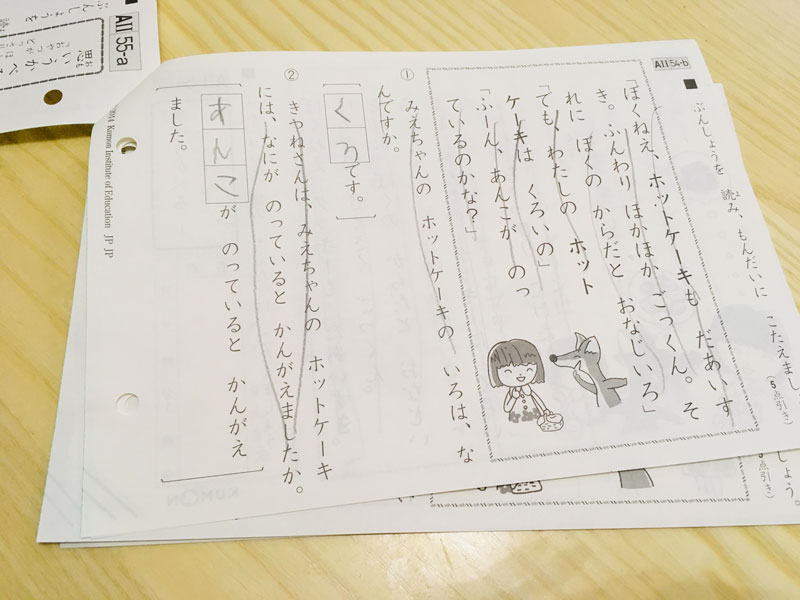 AII 54-b
ぶんしょうを 読み、もんだいに こたえまし
(5点引き)
「ぼくねえ、ホットケーキも だあいす
き。ふんわり ほかほか ごっくん。そ
れに ぼくの からだと おなじいろ」
「でも、わたしの ホット
ケーキは くろいの」
「ふーん、あんこが のっ
ているのかな？」
① みえちゃんの ホットケーキの いろは、な
んですか。
くろです。
② きつねさんは、みえちゃんの ホットケーキ
には、なにが のっていると かんがえましたか。
あんこが のっていると かんがえ
ました。
2014 Kumon Institute of Education JP JP
AII 55-a
ぶんしょうを 読
思いうかべ
しょう。
点引き)
KUMON